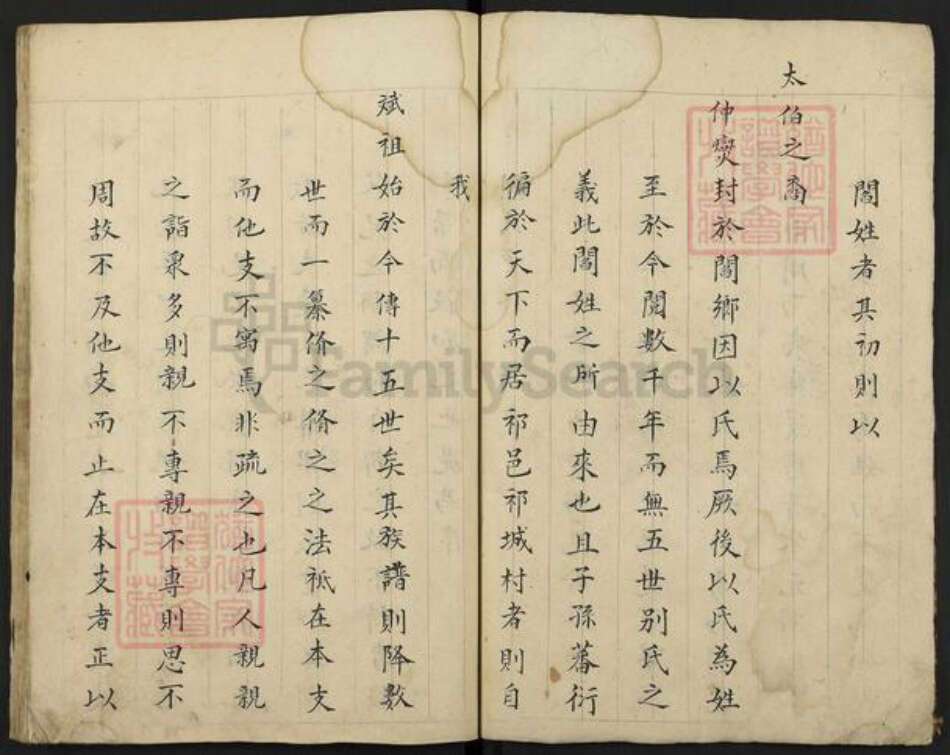 閻姓者其初則以
太伯之裔
仲奕封於閻鄉因以氏焉厥後以氏為姓
至於今閱數千年而無五世别氏之
義此閻姓之所由來也且子孫蕃衍
徧於天下而居祁邑祁城村者則自
我
斌祖始於今傳十五世矣其族譜則降數
世而一纂脩之脩之之法祗在本支
而他支不寫焉非疏之也凡人親親
之詣衆多則親不專親不專則思不
周故不及他支而止在本支者正以
FamilySearch